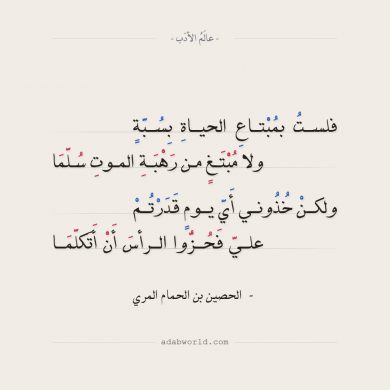 - عالَمُ الأدَب -
فلستُ بمُبْتاعِ الحياةِ بِسُبّةٍ
ولا مُبْتَغٍ من رَهْبَةِ الموتِ سُلّمَا
ولكنْ خُذُوني أَيّ يومٍ قَدَرْتُمْ
عليّ فَحُزُّوا الرأسَ أَنْ أتكلّمَا
- الحصين بن الحمام المري
adabworld.com